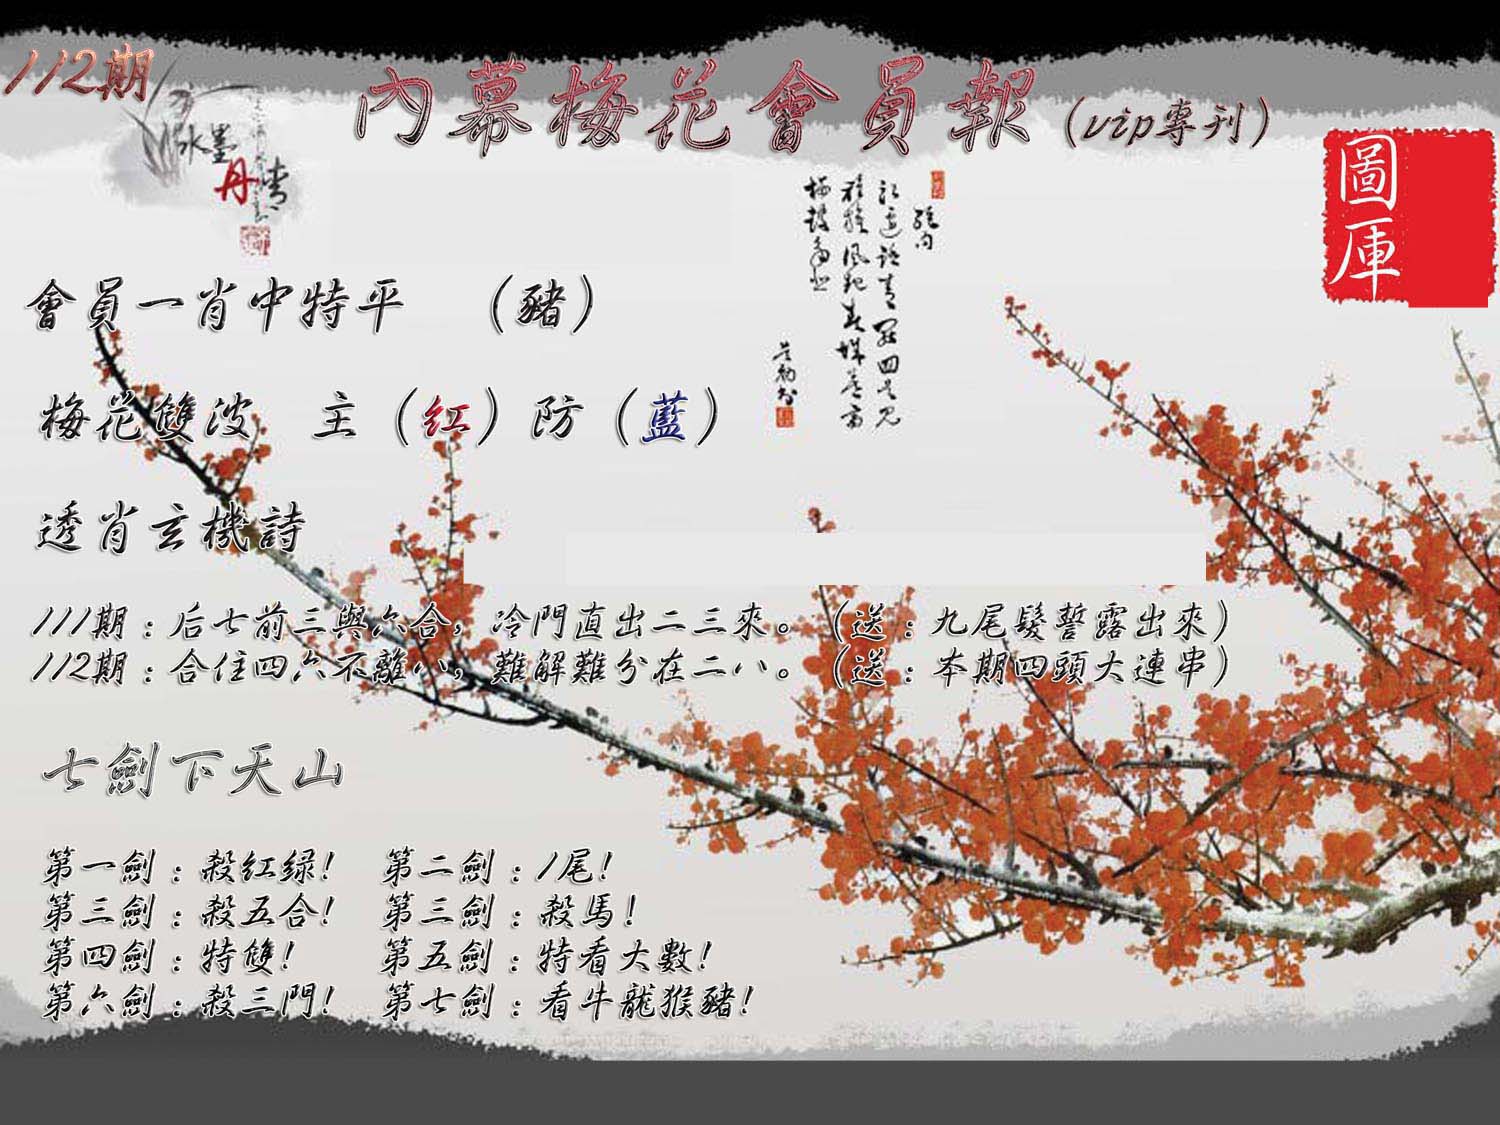 112期
內幕梅花會員報（vip專刊）
水墨
丹青
圖庫
會員一肖中特平　（豬）
梅花雙波　主（红）防（藍）
透肖玄機詩
111期：后七前三與六合，冷門直出二三來。（送：九尾髮誓露出來）
112期：合住四六不離八，難解難分在二八。（送：本期四頭大連串）
七劍下天山
第一劍：殺紅绿！　第二劍：1尾！
第三劍：殺五合！　第三劍：殺馬！
第四劍：特雙！　第五劍：特看大數！
第六劍：殺三門！　第七劍：看牛龍猴豬！